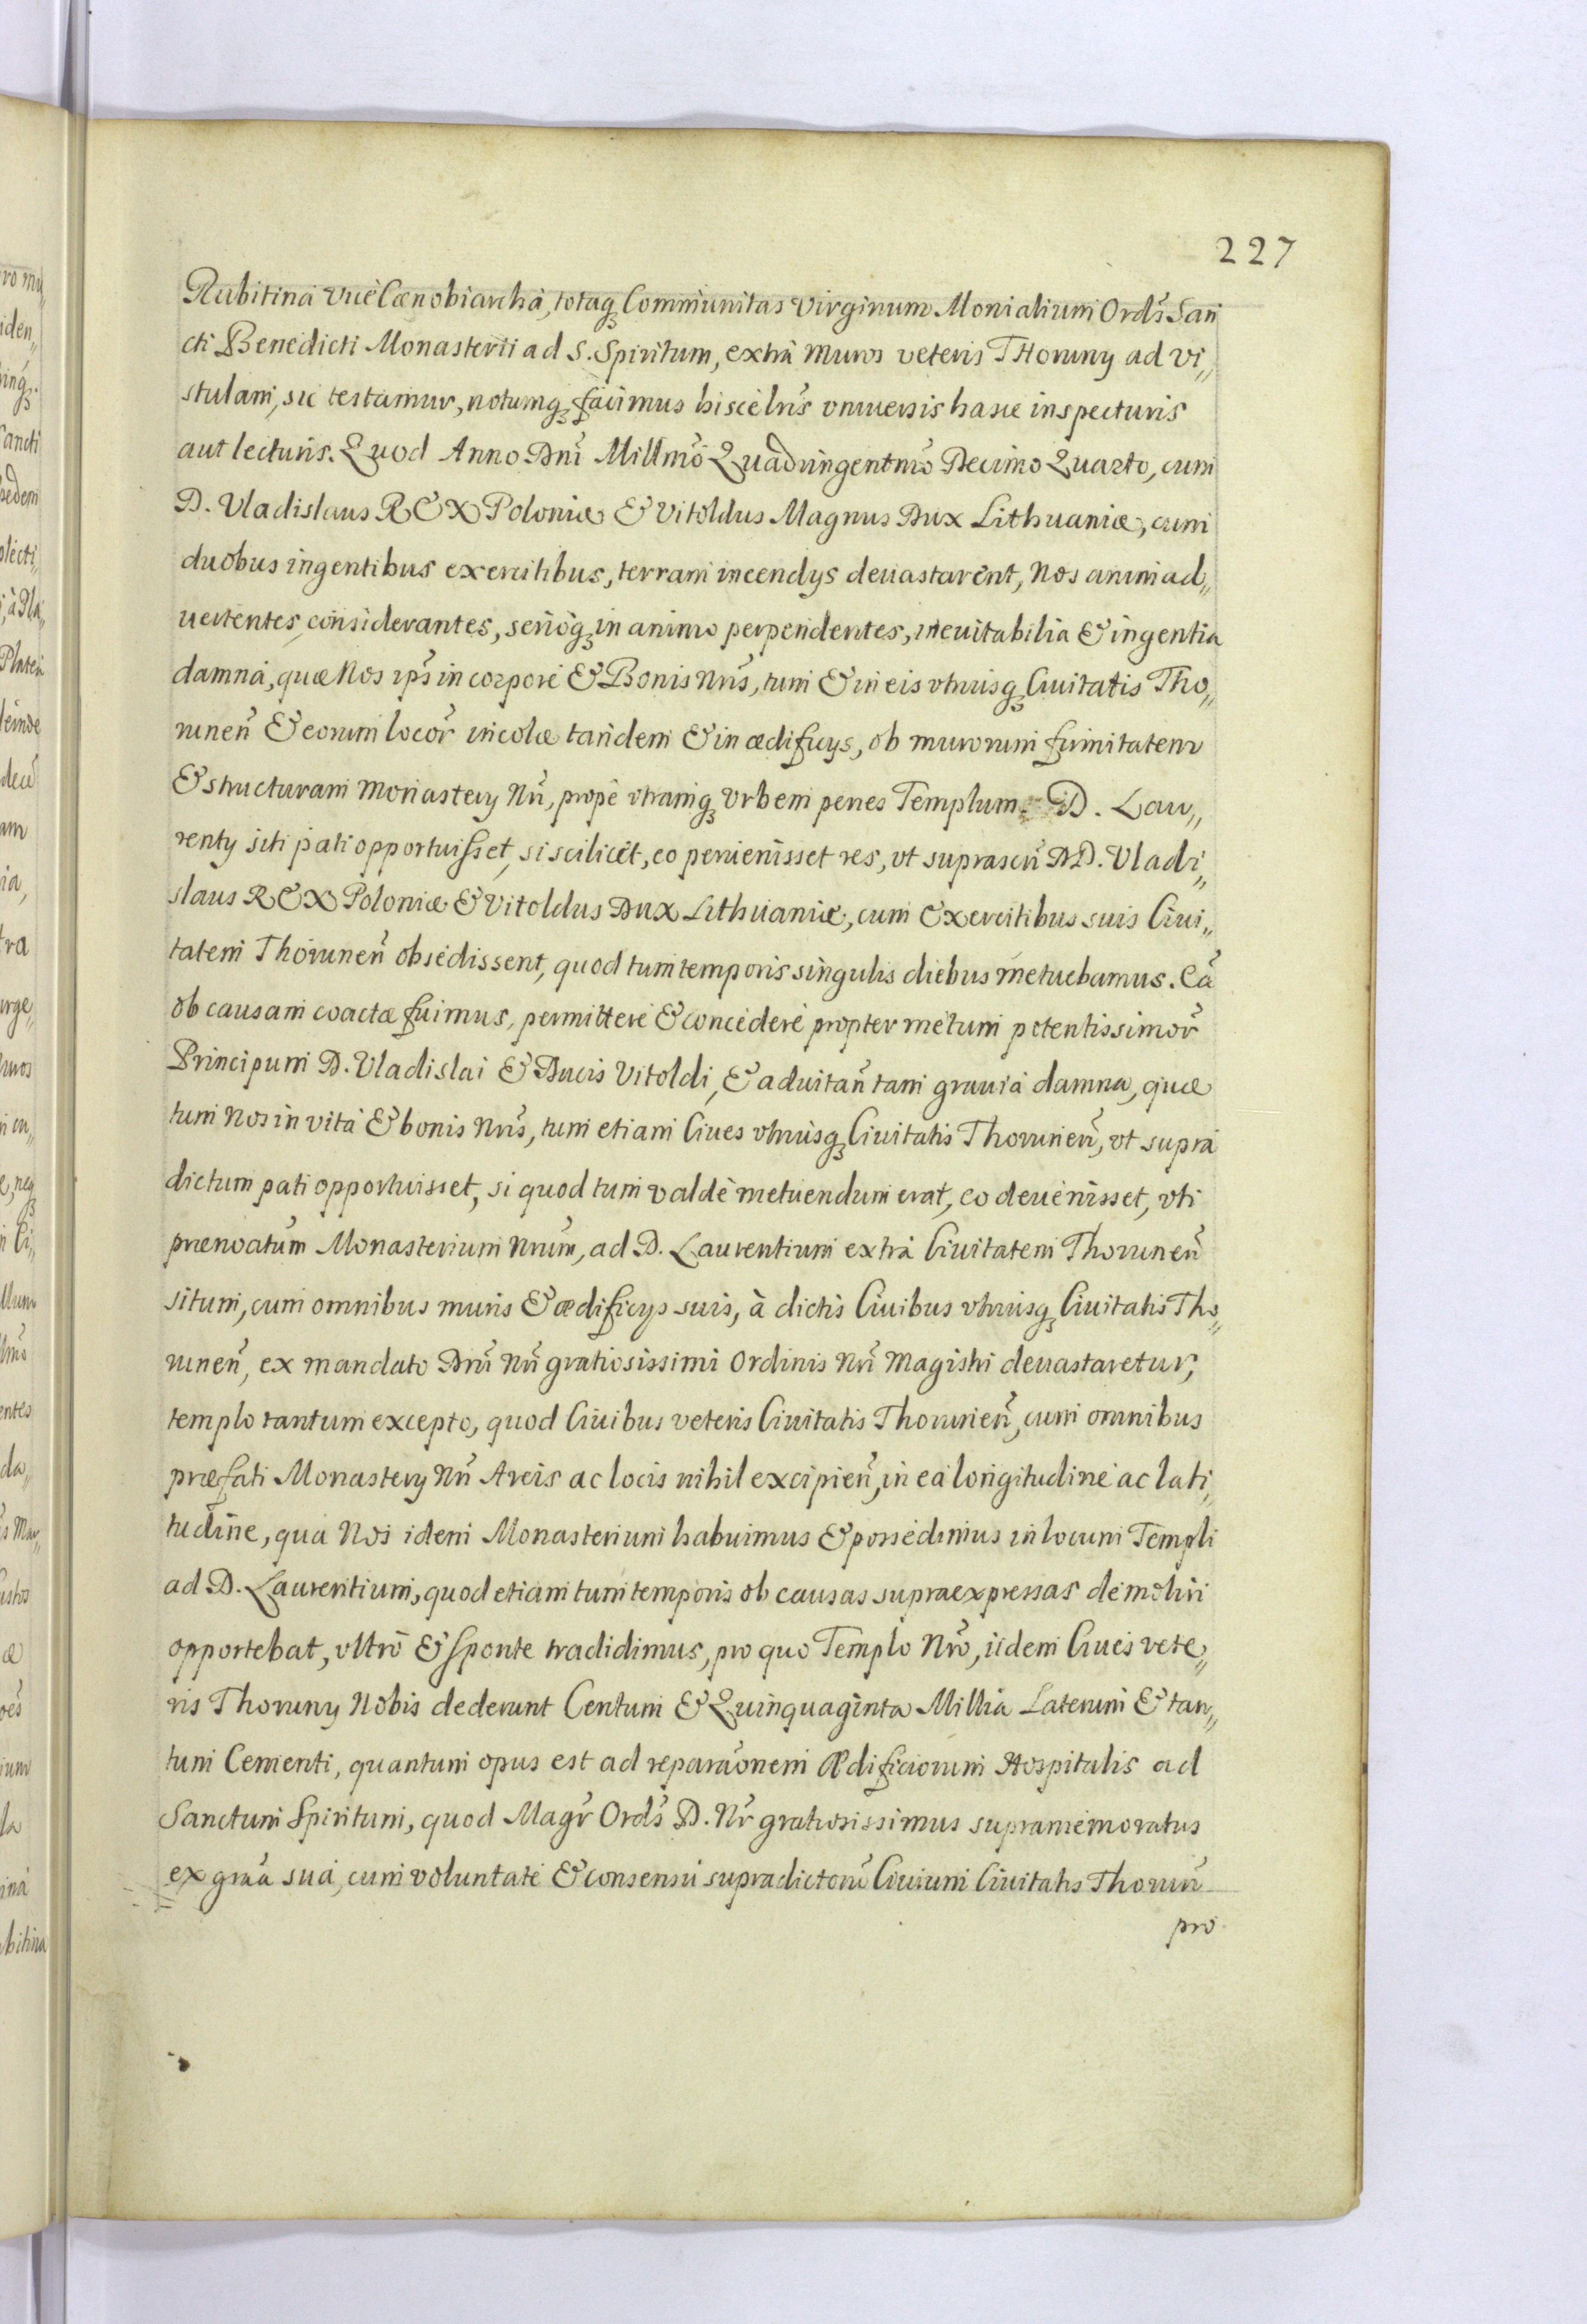 227
Rubitina Vice Cænobiarcha, totaq́ Communitas Virginum Monialium Ords̃ San
cti Benedicti Monasterii ad S. Spiritum, extrà muros veteris THoruny ad Vi„
stulam, sic testamur, notumq́ facimus hisce lrĩs vniuersis hasce inspecturis
aut lecturis. Quod Anno Dnĩ Millmõ Quadringentmõ Decimo Quarto, cum
D. Vladislaus REX Poloniæ & Vitoldus Magnus Dux Lithuaniæ, cum
duobus ingentibus exercitibus, terram incendys deuastarent, Nos animad„
uertentes, considerantes, serioq́ in animo perpendentes, ineuitabilia & ingentia
damna, quæ Nos ips̃ in corpore & Bonis Nrĩs, tum & in eis vtriusq́ Ciuitatis Tho„
runeñ & eorum locor̃ incolæ tandem & in ædificys, ob murorum firmitatem
& structuram Monastery Nrĩ, propè vtramq́ Vrbem penes Templum D. Lau„
renty siti pati opportuisset, si scilicet, eo peruenisset res, vt suprascrĩ DD. Vladi„
slaus REX Poloniæ & Vitoldus Dux Lithuaniæ, cum Exercitibus suis Ciui„
tatem Thoruneñ obsedissent, quod tum temporis singulis diebus metuebamus. Eã
ob causam coactæ fuimus, permittere & concedere propter metum potentissimor̃
Principum D. Vladislai & Ducis Vitoldi, & ad vitañ tam grauia damna, quæ
tum Nos in vita & bonis Nrĩs, tum etiam Ciues vtriusq́ Ciuitatis Thoruneñ, vt suprà
dictum pati opportuisset, si quod tum valdè metuendum erat, eo deuenisset, vti
prænoatum̃ Monasterium Nrum̃, ad D. Laurentium extrà Ciuitatem Thoruneñ
situm, cum omnibus muris & ædificys suis, à dictis Ciuibus vtriusq́ Ciuitatis Tho„
runeñ, ex mandato Dnĩ Nrĩ gratiosissimi Ordinis Nrĩ Magistri deuastaretur,
templo tantum excepto, quod Ciuibus veteris Ciuitatis Thoruneñ, cum omnibus
præfati Monastery Nrĩ Areis ac locis nihil excipieñ, in ea longitudine ac lati„
tudine, qua Nos idem Monasterium habuimus & possedimus in locum Templi
ad D. Laurentium, quod etiam tum temporis ob causas supraexpressas demoliri
opportebat, vltrò & sponte tradidimus, pro quo Templo Nrõ, iidem Ciues vete„
ris Thoruny Nobis dederunt Centum & Quinquaginta Millia Laterum & tan„
tum Cementi, quantum opus est ad reparaõnem Ædificiorum Hospitalis ad
Sanctum Spiritum, quod Magr̃ Ords̃ D. Nr̃ gratiosissimus supramemoratus
ex graã sua, cum voluntate & consensu supradictorũ Ciuium Ciuitatis Thoruñ
pro